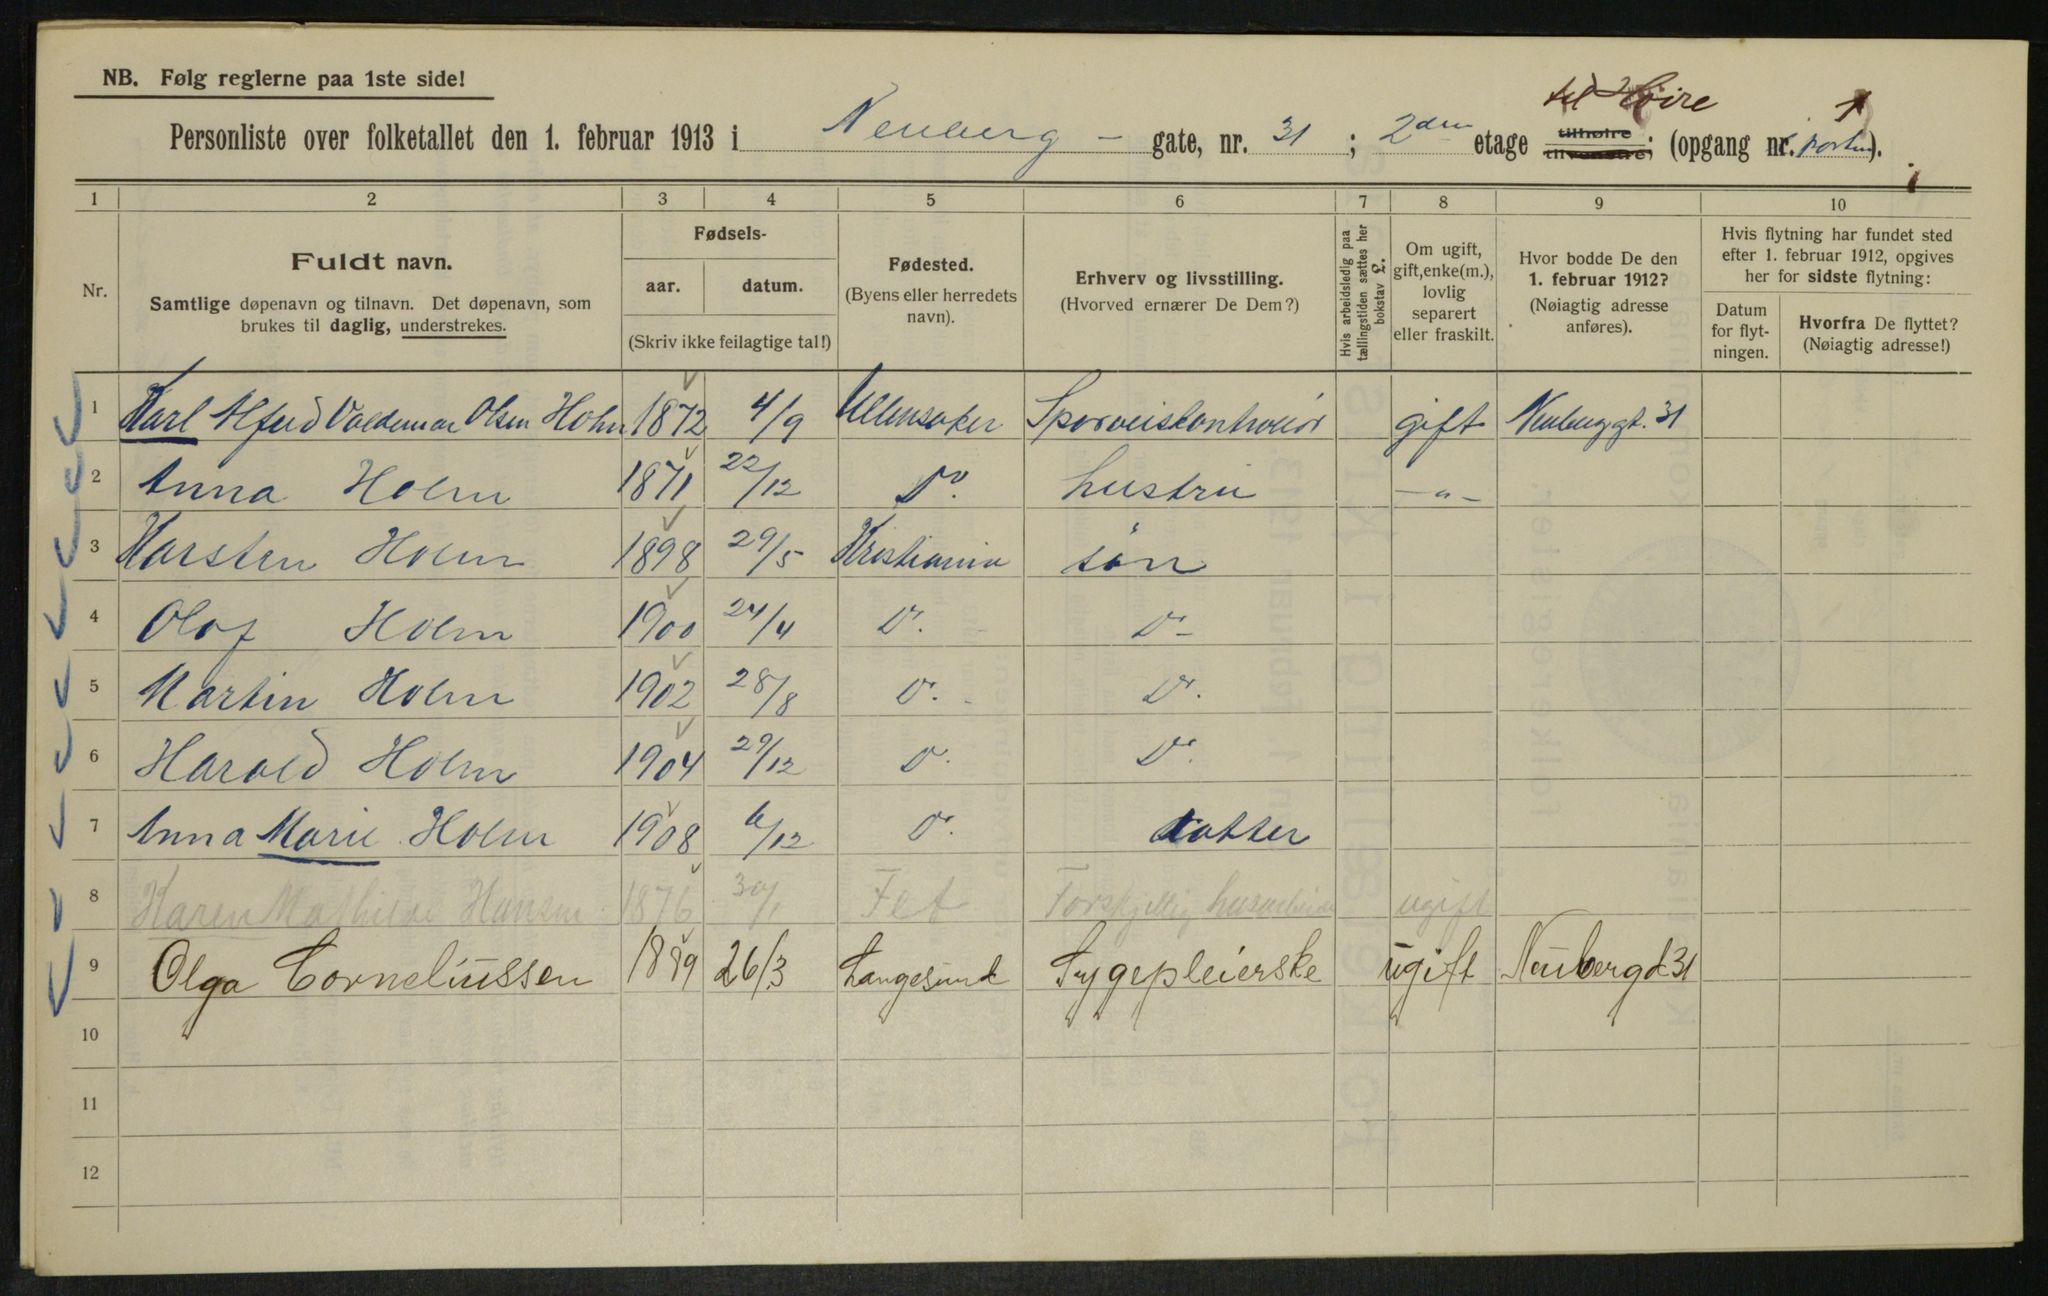 NB. Følg reglerne paa 1ste side!
til Høire
Personliste over folketallet den 1. februar 1913 i Neuberg – gate, nr. 31 ; 2den etage tilhøire tilvenstre; (opgang nr. ).
1 2 3 4 5 6 7 8 9 10
Nr.
Fuldt navn.
Samtlige døpenavn og tilnavn. Det døpenavn, som
brukes til daglig, understrekes.
Fødsels-
aar. datum.
(Skriv ikke feilagtige tal!)
Fødested.
(Byens eller herredets
navn).
Erhverv og livsstilling.
(Hvorved ernærer De Dem?)
Hvis arbeidsledig paa
tællingstiden sættes her
bokstav L.
Om ugift,
gift, enke(m.),
lovlig
separert
eller fraskilt.
Hvor bodde De den
1. februar 1912?
(Nøiagtig adresse
anføres).
Hvis flytning har fundet sted
efter 1. februar 1912, opgives
her for sidste flytning:
Datum
for flyt-
ningen.
Hvorfra De flyttet?
(Nøiagtig adresse!)
1 Karl Alfred Valdemar Olsen Holm 1872 4/9 Ullensaker Sporveiskontrollør gift Neuberggt. 31
2 Anna Holm 1871 22/12 Do. hustru -"-
3 Karsten Holm 1898 29/5 Kristiania søn
4 Olaf Holm 1900 24/4 Do. Do-
5 Martin Holm 1902 28/8 Do. Do.
6 Harald Holm 1904 29/12 Do. Do.
7 Anna Marie Holm 1908 6/12 Do. datter
8 Karen Mathilde Hansen 1876 30/1 Fet Forskjellig husarbeide ugift
9 Olga Corneliussen 1889 26/3 Langesund Sygepleierske ugift Neubergd 31
10
11
12